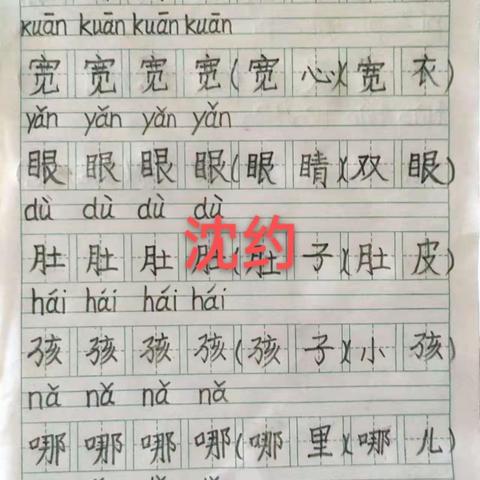 kuān kuān kuān kuān
宽 宽 宽 宽(宽 心)(宽 衣)
yǎn yǎn yǎn yǎn
眼 眼 眼 眼(眼 睛)(双 眼)
dù dù dù dù
肚 肚 肚 肚(肚 子)(肚 皮)
沈约
hái hái hái hái
孩 孩 孩 孩(孩 子)(小 孩)
nǎ nǎ nǎ nǎ
哪 哪 哪 哪(哪 里)(哪 儿)